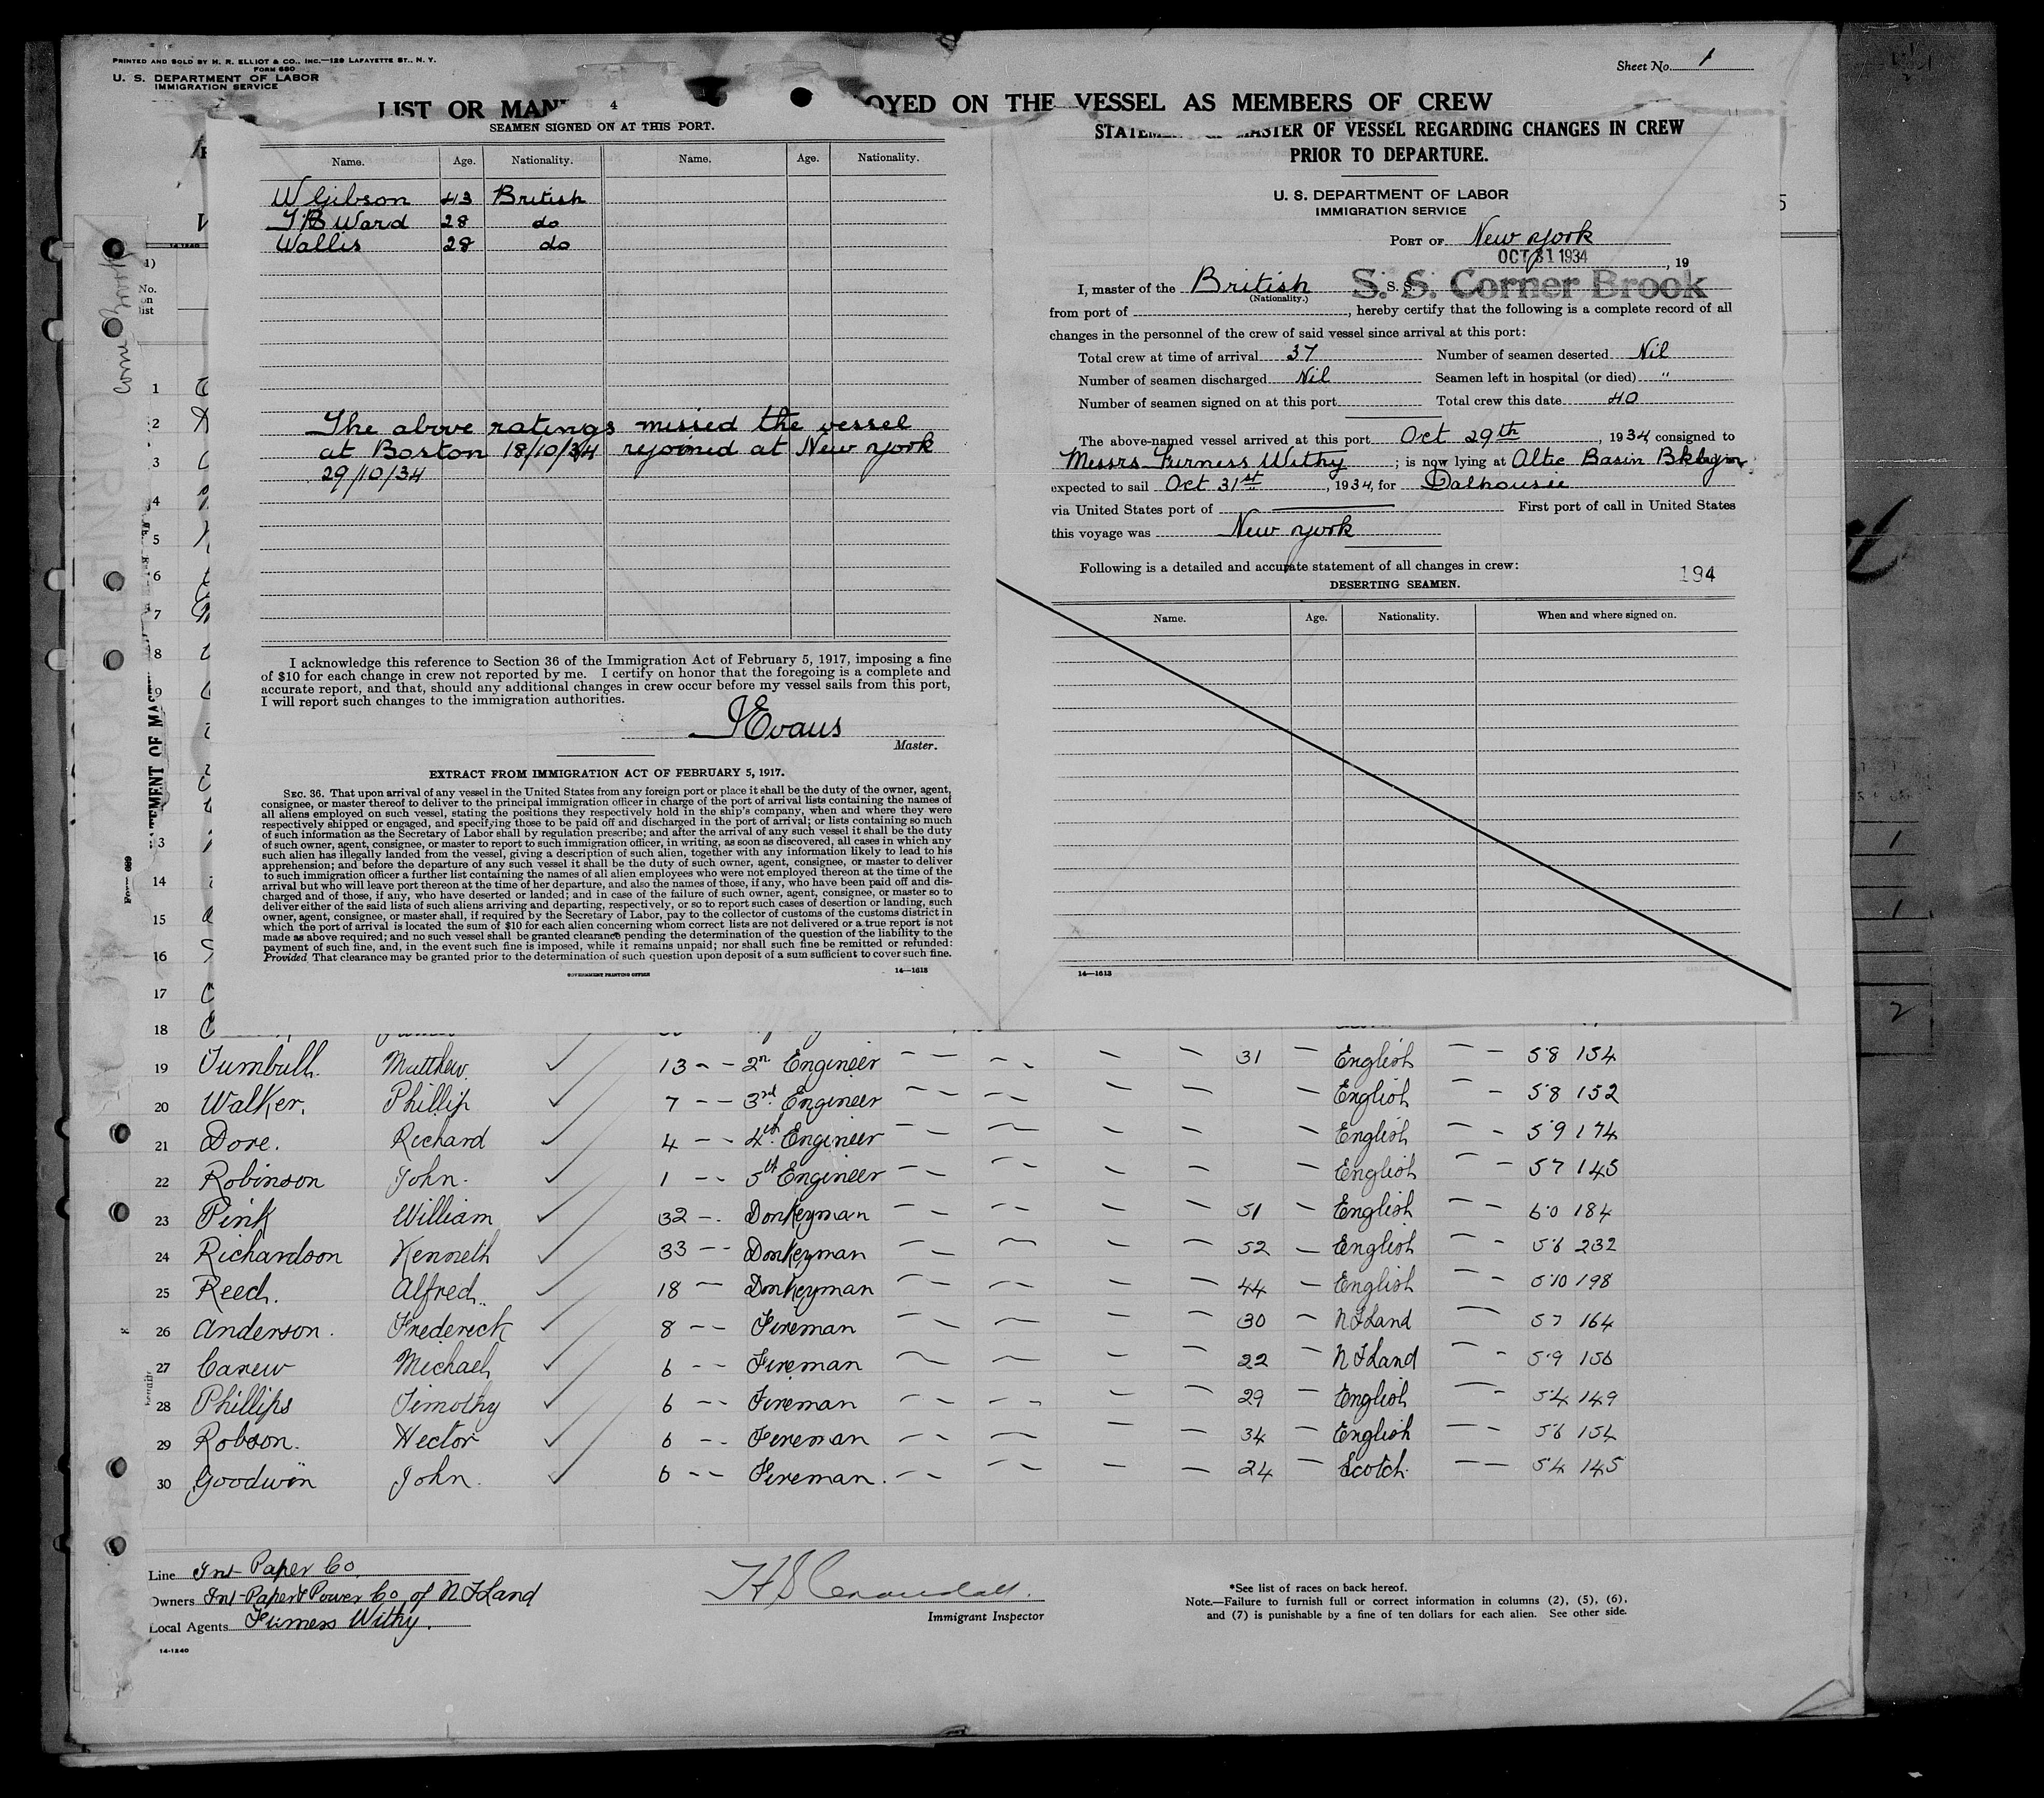 PRINTED AND SOLD BY H. R. ELLIOT & CO., INC.—129 LAFAYETTE ST., N. Y.
FORM 680
U. S. DEPARTMENT OF LABOR
IMMIGRATION SERVICE
Sheet No. 1
LIST OR MAN
OYED ON THE VESSEL AS MEMBERS OF CREW
4
SEAMEN SIGNED ON AT THIS PORT.
Name. Age. Nationality. Name. Age. Nationality.
W Gibson 43 British
T B Ward 28 do
Wallis 28 do
The above ratings missed the vessel
at Boston 18/10/34 rejoined at New York
29/10/34
I acknowledge this reference to Section 36 of the Immigration Act of February 5, 1917, imposing a fine
of $10 for each change in crew not reported by me. I certify on honor that the foregoing is a complete and
accurate report, and that, should any additional changes in crew occur before my vessel sails from this port,
I will report such changes to the immigration authorities.
J Evans
Master.
EXTRACT FROM IMMIGRATION ACT OF FEBRUARY 5, 1917.
SEC. 36. That upon arrival of any vessel in the United States from any foreign port or place it shall be the duty of the owner, agent,
consignee, or master thereof to deliver to the principal immigration officer in charge of the port of arrival lists containing the names of
all aliens employed on such vessel, stating the positions they respectively hold in the ship's company, when and where they were
respectively shipped or engaged, and specifying those to be paid off and discharged in the port of arrival; or lists containing so much
of such information as the Secretary of Labor shall by regulation prescribe; and after the arrival of any such vessel it shall be the duty
of such owner, agent, consignee, or master to report to such immigration officer, in writing, as soon as discovered, all cases in which any
such alien has illegally landed from the vessel, giving a description of such alien, together with any information likely to lead to his
apprehension; and before the departure of any such vessel it shall be the duty of such owner, agent, consignee, or master to deliver
to such immigration officer a further list containing the names of all alien employees who were not employed thereon at the time of the
arrival but who will leave port thereon at the time of her departure, and also the names of those, if any, who have been paid off and dis-
charged and of those, if any, who have deserted or landed; and in case of the failure of such owner, agent, consignee, or master so to
deliver either of the said lists of such aliens arriving and departing, respectively, or so to report such cases of desertion or landing, such
owner, agent, consignee, or master shall, if required by the Secretary of Labor, pay to the collector of customs of the customs district in
which the port of arrival is located the sum of $10 for each alien concerning whom correct lists are not delivered or a true report is not
made as above required; and no such vessel shall be granted clearance pending the determination of the question of the liability to the
payment of such fine, and, in the event such fine is imposed, while it remains unpaid; nor shall such fine be remitted or refunded:
Provided That clearance may be granted prior to the determination of such question upon deposit of a sum sufficient to cover such fine.
GOVERNMENT PRINTING OFFICE 14—1613
STATEMENT OF MASTER OF VESSEL REGARDING CHANGES IN CREW
PRIOR TO DEPARTURE.
U. S. DEPARTMENT OF LABOR
IMMIGRATION SERVICE
PORT OF New York
OCT 31 1934, 19
I, master of the British S. S. S. S. Corner Brook
(Nationality.)
from port of , hereby certify that the following is a complete record of all
changes in the personnel of the crew of said vessel since arrival at this port:
Total crew at time of arrival 37 Number of seamen deserted Nil
Number of seamen discharged Nil Seamen left in hospital (or died) "
Number of seamen signed on at this port Total crew this date 40
The above-named vessel arrived at this port Oct 29th, 1934 consigned to
Messrs Furness Withy; is now lying at Altic Basin Bklyn
expected to sail Oct 31st, 1934, for Dalhousie
via United States port of First port of call in United States
this voyage was New York
Following is a detailed and accurate statement of all changes in crew:
194
DESERTING SEAMEN.
Name. Age. Nationality. When and where signed on.
14—1613
No.
on
list
1
2
3
4
5
6
7
8
9
3
14
15
16
17
18
19 Turnbull. Matthew. 13 2n. Engineer 31 English 5 8 154
20 Walker. Phillip 7 3rd. Engineer English 5 8 152
21 Dore. Richard 4 4th. Engineer English 5 9 174
22 Robinson John. 1 5th Engineer English 5 7 145
23 Pink William 32 Donkeyman 51 English 6 0 184
24 Richardson Kenneth 33 Donkeyman 52 English 5 6 232
25 Reed. Alfred. 18 Donkeyman 44 English 5 10 198
26 Anderson. Frederick 8 Fireman 30 N F Land 5 7 164
27 Carew Michael 6 Fireman 22 N F Land 5 9 156
28 Phillips Timothy 6 Fireman 29 English 5 4 149
29 Robson. Hector 6 Fireman 34 English 5 6 154
30 Goodwin John. 6 Fireman. 24 Scotch. 5 4 145
Line Int- Paper Co.
Owners Int-Paper & Power Co of N F Land
Local Agents Furness Withy.
14-1240
Immigrant Inspector
*See list of races on back hereof.
Note.—Failure to furnish full or correct information in columns (2), (5), (6),
and (7) is punishable by a fine of ten dollars for each alien. See other side.